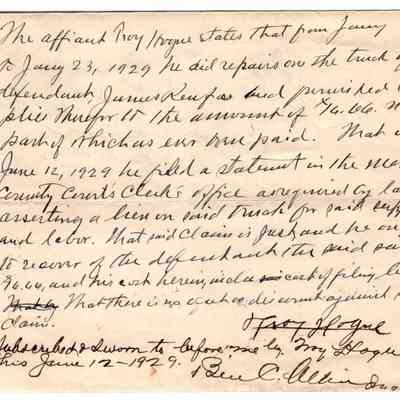 The affiant Troy Hogue states that from Jany
to Jany 23, 1929 he did repairs on the truck of
defendant, James and furnished
plies therefor to the amount of $96.66. n
part of which as ever been paid. That
June 12, 1929 he filed a statement in the Ma
County Court's Clerk's office as required by la
asserting a lien on said truck for said supp
and labor. That said claim is just and he ou
to recover of the defendant the said su
96.66, and his cost herein, and cost of filing
That there is no offset or discount against
claim.
Troy Hogue
Subscribed & sworn to before me by Troy Hogue
this June 12-1929.
Ben C.